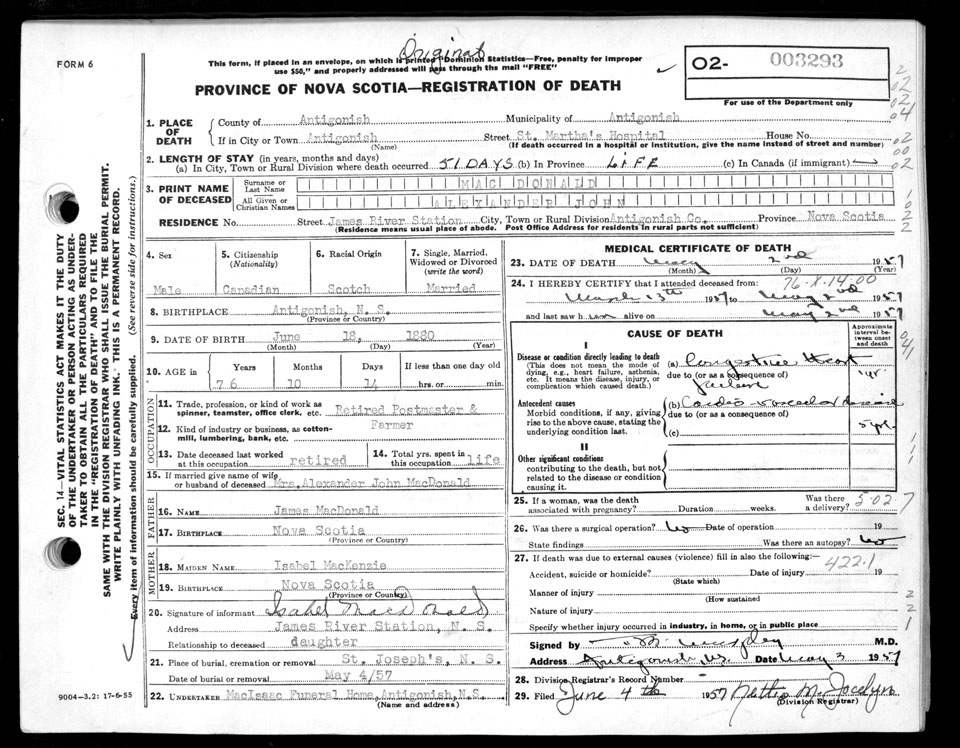 Original
FORM 6
This form, if placed in an envelope, on which is printed "Dominion Statistics—Free, penalty for improper
use $50," and properly addressed will pass through the mail "FREE"
O2- 003293
For use of the Department only
PROVINCE OF NOVA SCOTIA—REGISTRATION OF DEATH
1. PLACE OF DEATH
County of Antigonish Municipality of Antigonish
If in City or Town Antigonish Street St. Martha's Hospital House No.
(Name) (If death occurred in a hospital or institution, give the name instead of street and number)
2. LENGTH OF STAY (in years, months and days)
(a) In City, Town or Rural Division where death occurred 51 DAYS (b) In Province LIFE (c) In Canada (if immigrant)
3. PRINT NAME OF DECEASED
Surname or Last Name MAC DONALD
All Given or Christian Names ALEXANDER JOHN
RESIDENCE No. Street James River Station City, Town or Rural Division Antigonish Co. Province Nova Scotia
(Residence means usual place of abode. Post Office Address for residents in rural parts not sufficient)
4. Sex
Male
5. Citizenship (Nationality)
Canadian
6. Racial Origin
Scotch
7. Single, Married, Widowed or Divorced (write the word)
Married
8. BIRTHPLACE Antigonish, N. S.
(Province or Country)
9. DATE OF BIRTH June 18, 1880
(Month) (Day) (Year)
10. AGE Years Months Days If less than one day old
76 10 14 hrs. or min.
OCCUPATION
11. Trade, profession or kind of work as spinner, teamster, office clerk, etc. Retired Postmaster &
Farmer
12. Kind of industry or business, as cotton-mill, lumbering, bank, etc.
13. Date deceased last worked at this occupation retired
14. Total yrs. spent in this occupation life
15. If married give name of wife or husband of deceased Mrs. Alexander John MacDonald
FATHER
16. NAME James MacDonald
17. BIRTHPLACE Nova Scotia
(Province or Country)
MOTHER
18. MAIDEN NAME Isabel MacKenzie
19. BIRTHPLACE Nova Scotia
(Province or Country)
20. Signature of informant Isabel MacDonald
Address James River Station, N. S.
Relationship to deceased daughter
21. Place of burial, cremation or removal St. Joseph's, N. S.
Date of burial or removal May 4/57
22. UNDERTAKER MacIsaac Funeral Home, Antigonish, N.S.
(Name and address)
MEDICAL CERTIFICATE OF DEATH
23. DATE OF DEATH May 2nd 1957
(Month) (Day) (Year)
76-X-14.00
24. I HEREBY CERTIFY that I attended deceased from:
March 13th 1957 to May 2nd 1957
and last saw h alive on May 2nd 1957
CAUSE OF DEATH
Approximate interval between onset and death
I
Disease or condition directly leading to death
(This does not mean the mode of dying, e.g., heart failure, asthenia, etc. It means the disease, injury, or complication which caused death.)
(a) Congestive Heart
due to (or as a consequence of)
failure
1 yr.
Antecedent causes
Morbid conditions, if any, giving rise to the above cause, stating the underlying condition last.
(b) Cardio-vascular disease
due to (or as a consequence of)
(c)
5 yr.
II
Other significant conditions
contributing to the death, but not related to the disease or condition causing it.
25. If a woman, was the death associated with pregnancy? Duration weeks. Was there a delivery?
5-02-7
26. Was there a surgical operation? No Date of operation 19
State findings Was there an autopsy? No
27. If death was due to external causes (violence) fill in also the following:—
422.1
Accident, suicide or homicide? Date of injury 19
(State which)
Manner of injury
(How sustained
Nature of injury
Specify whether injury occurred in industry, in home, or in public place
Signed by M.D.
Address Antigonish, N.S. Date May 3 1957
28. Division Registrar's Record Number
29. Filed June 4th 1957 Nettie M. Jocelyn
(Division Registrar)
SEC. 14—VITAL STATISTICS ACT MAKES IT THE DUTY
OF THE UNDERTAKER OR PERSON ACTING AS UNDER-
TAKER TO OBTAIN ALL THE PARTICULARS REQUIRED
IN THE "REGISTRATION OF DEATH" AND TO FILE THE
SAME WITH THE DIVISION REGISTRAR WHO SHALL ISSUE THE BURIAL PERMIT.
WRITE PLAINLY WITH UNFADING INK. THIS IS A PERMANENT RECORD.
Every item of information should be carefully supplied. (See reverse side for instructions.)
9004-3.2: 17-6-55